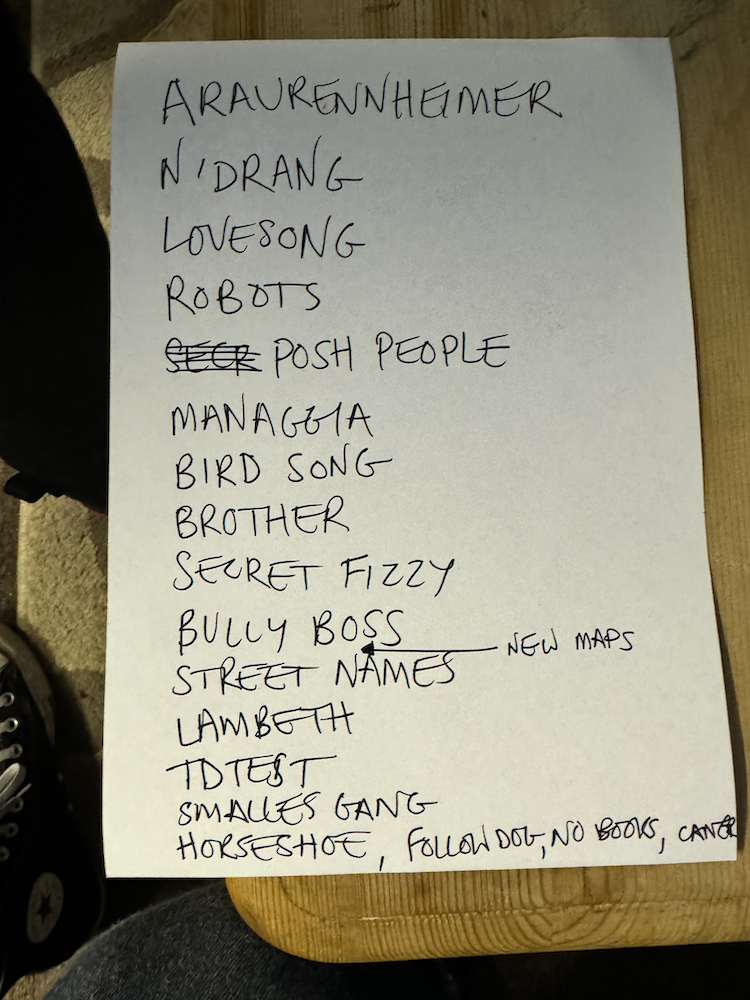 ARAURENNHEIMER
N'DRANG
LOVESONG
ROBOTS
POSH PEOPLE
MANAGGIA
BIRD SONG
BROTHER
SECRET FIZZY
BULLY BOSS
NEW MAPS
STREET NAMES
LAMBETH
TDTEST
SMALLES GANG
HORSESHOE, FOLLOW DOG, NO BOOKS,